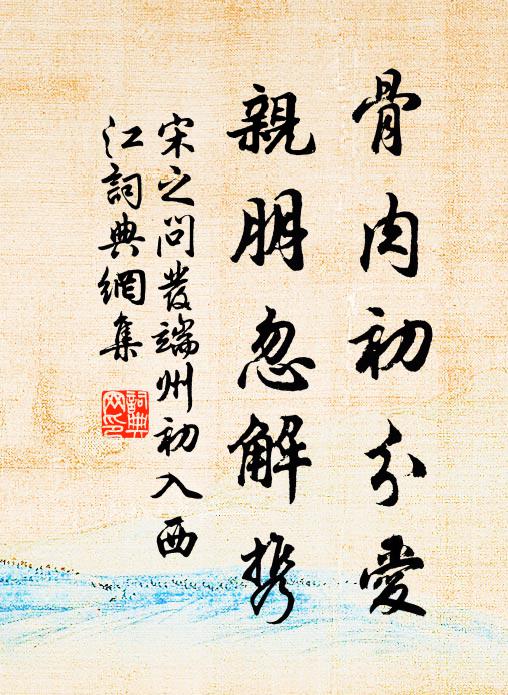 骨肉初分愛
親朋忽解携
宋之問發端州初入西
江詞典網集
詞典
网印